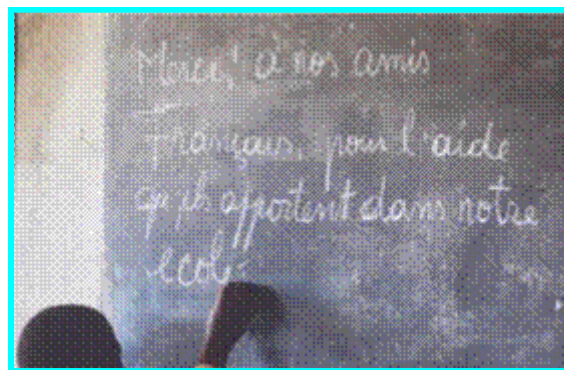 Merci à nos amis
Français, pour l'aide
qu'ils apportent dans notre
ecol